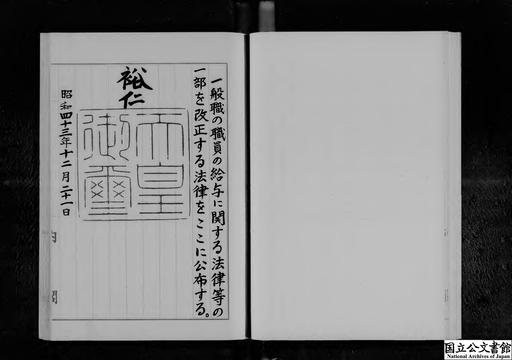 一般職の職員の給与に関する法律等の
一部を改正する法律をここに公布する。
裕仁
天皇
御璽
昭和四十三年十二月二十一日
国立公文書館
National Archives of Japan